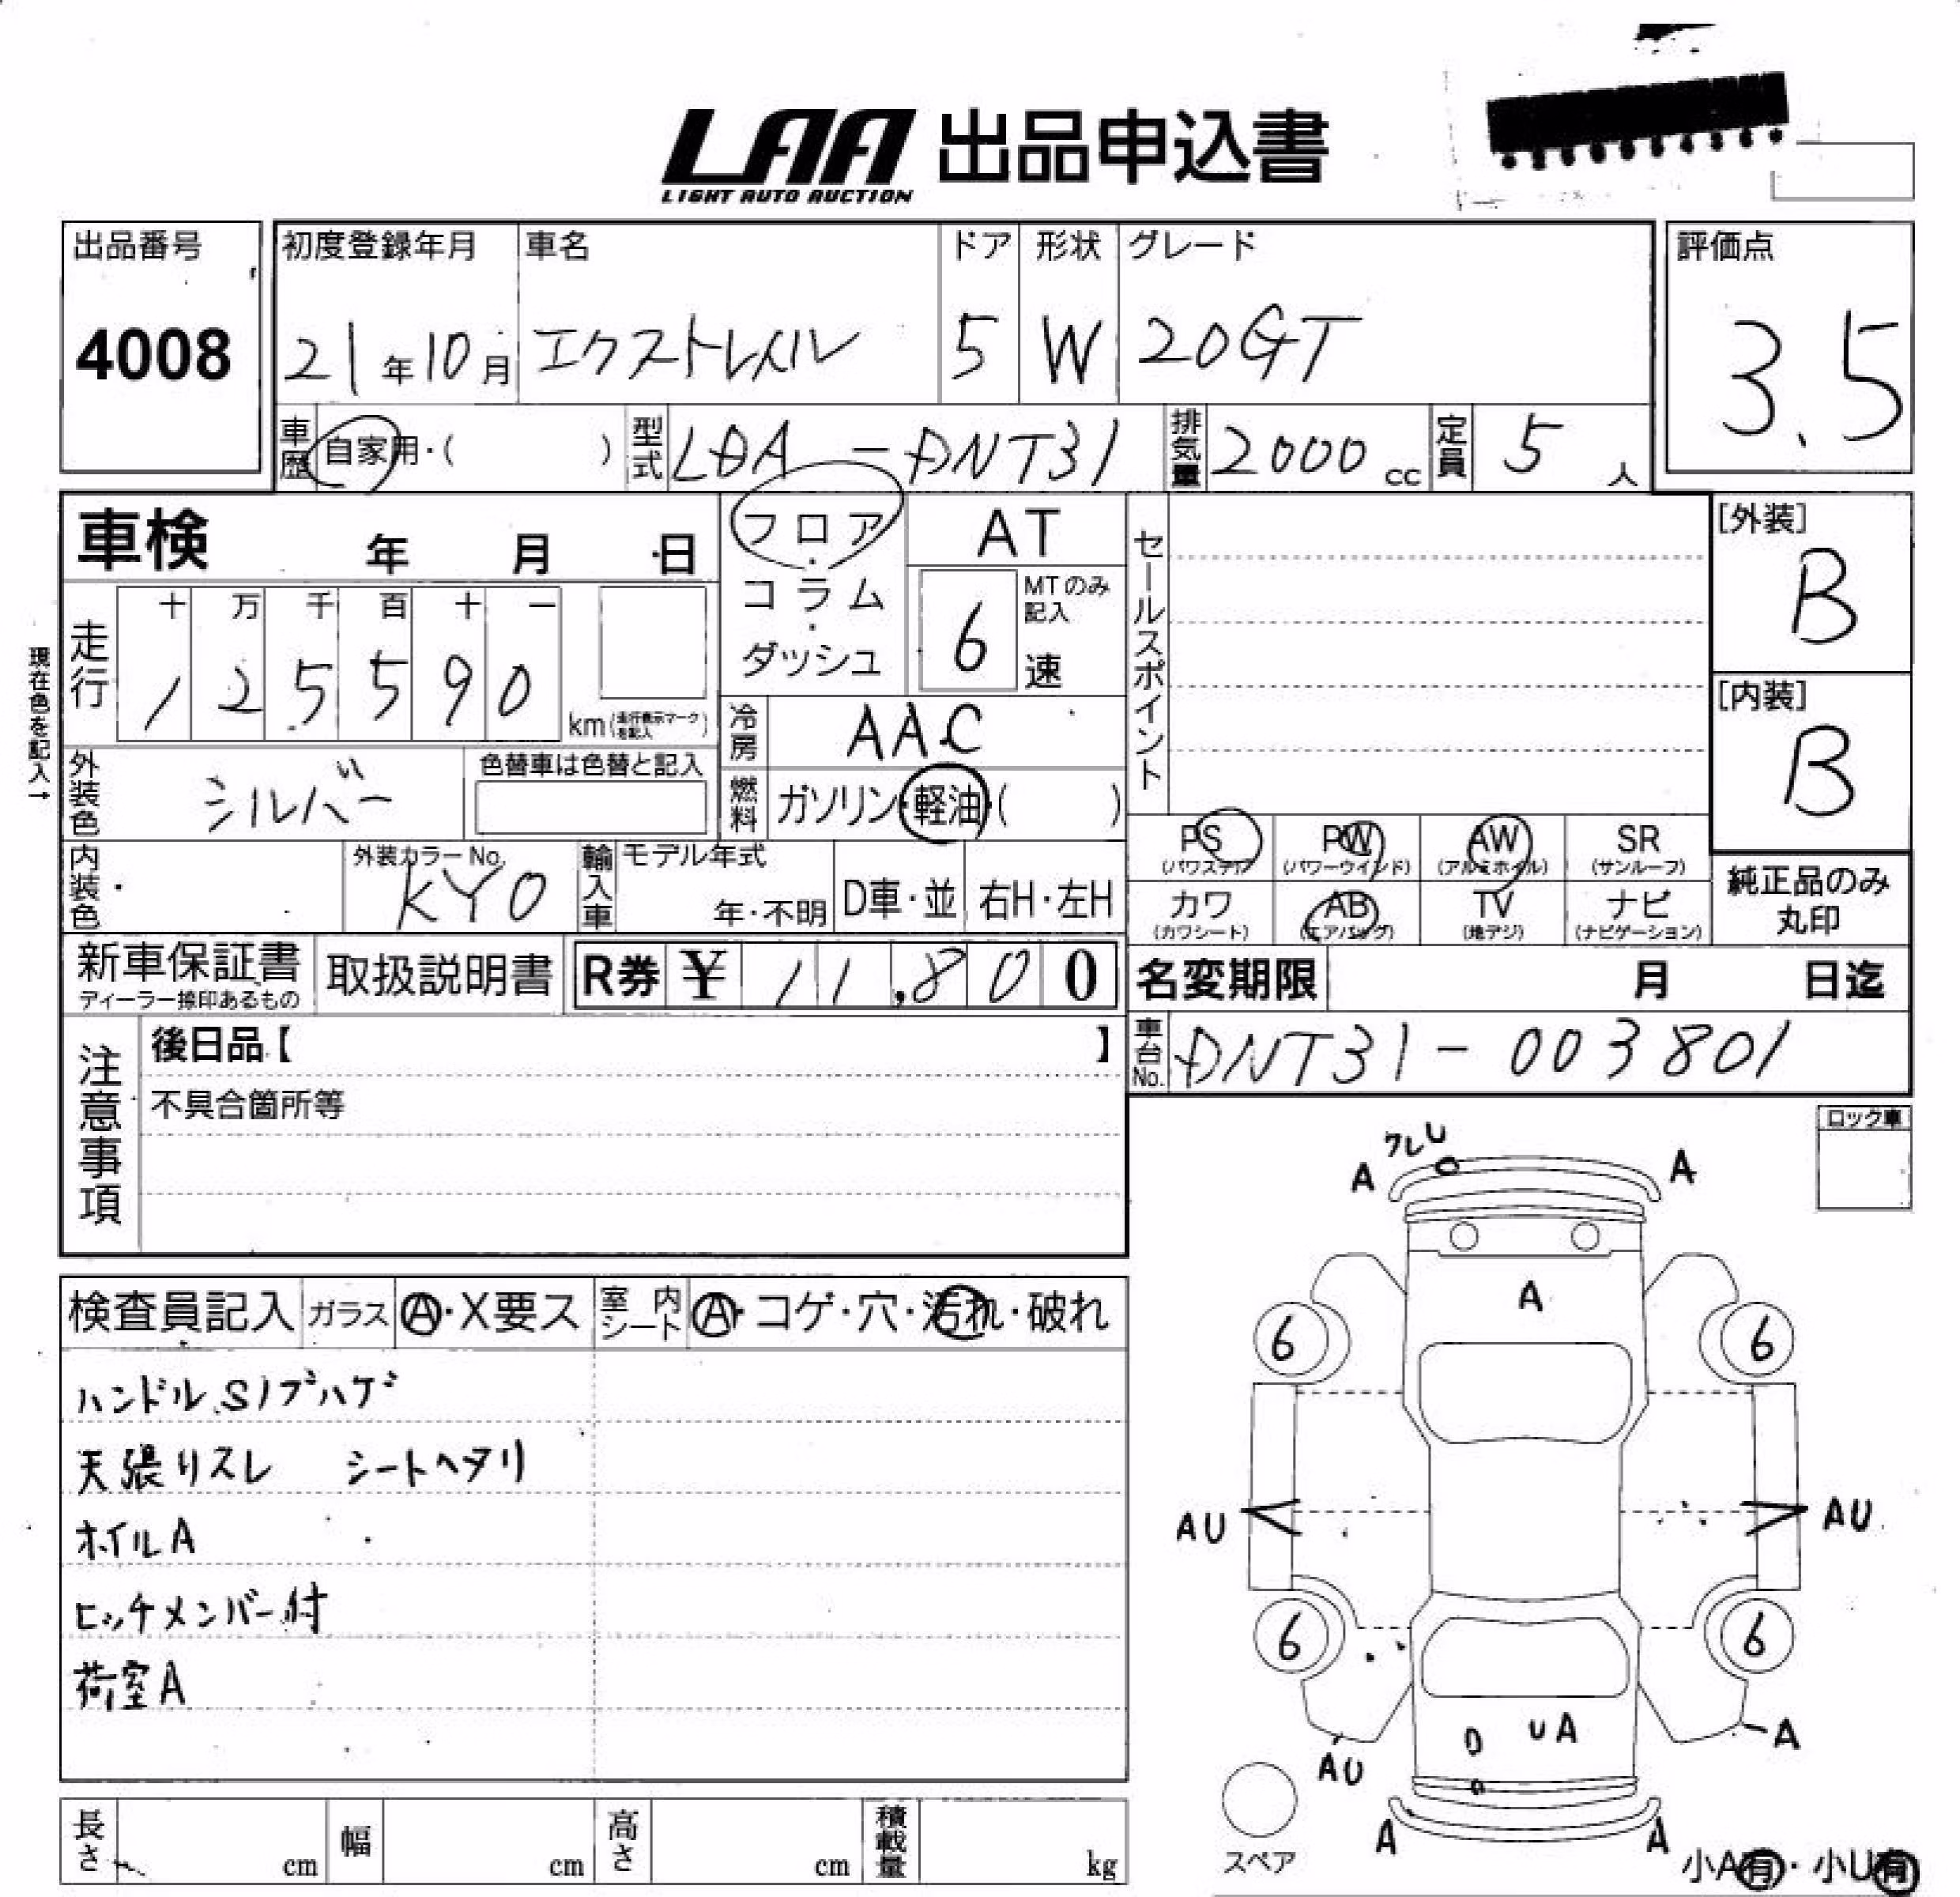 LAA 出品申込書
LIGHT AUTO AUCTION
出品番号 初度登録年月 車名 ドア 形状 グレード 評価点
4008 21年10月 エクストレイル 5 W 20GT 3.5
車歴 自家用・( ) 型式 LDA-DNT31 排気量 2000cc 定員 5人
車検 年 月 日 フロア・コラム・ダッシュ AT セールスポイント [外装]
B
MTのみ記入
6速
現在色を記入→
走行 十 万 千 百 十 一
1 2 5 5 9 0 km(走行表示マークを記入)
冷房 AAC [内装]
B
外装色 シルバー 色替車は色替と記入 燃料 ガソリン・軽油・( )
PS(パワステ) PW(パワーウインド) AW(アルミホイル) SR(サンルーフ)
内装色 外装カラーNo. KY0 輸入車 モデル年式 年・不明 D車・並 右H・左H
カワ(カワシート) AB(エアバッグ) TV(地デジ) ナビ(ナビゲーション) 純正品のみ丸印
新車保証書 ディーラー捺印あるもの 取扱説明書 R券 ¥ 11,800 名変期限 月 日迄
注意事項 後日品【 】 車台No. DNT31-003801
不具合箇所等
ロック車
フレU
A A
検査員記入 ガラス A・X要ス 室内シート A・コゲ・穴・汚れ・破れ
A
6 6
ハンドル、Sノブハゲ
天張りスレ シートヘタリ
AU AU
ホイルA
ヒッチメンバー付
6 6
荷室A
D UA A
AU
A A
長さ cm 幅 cm 高さ cm 積載量 kg スペア 小A有・小U有